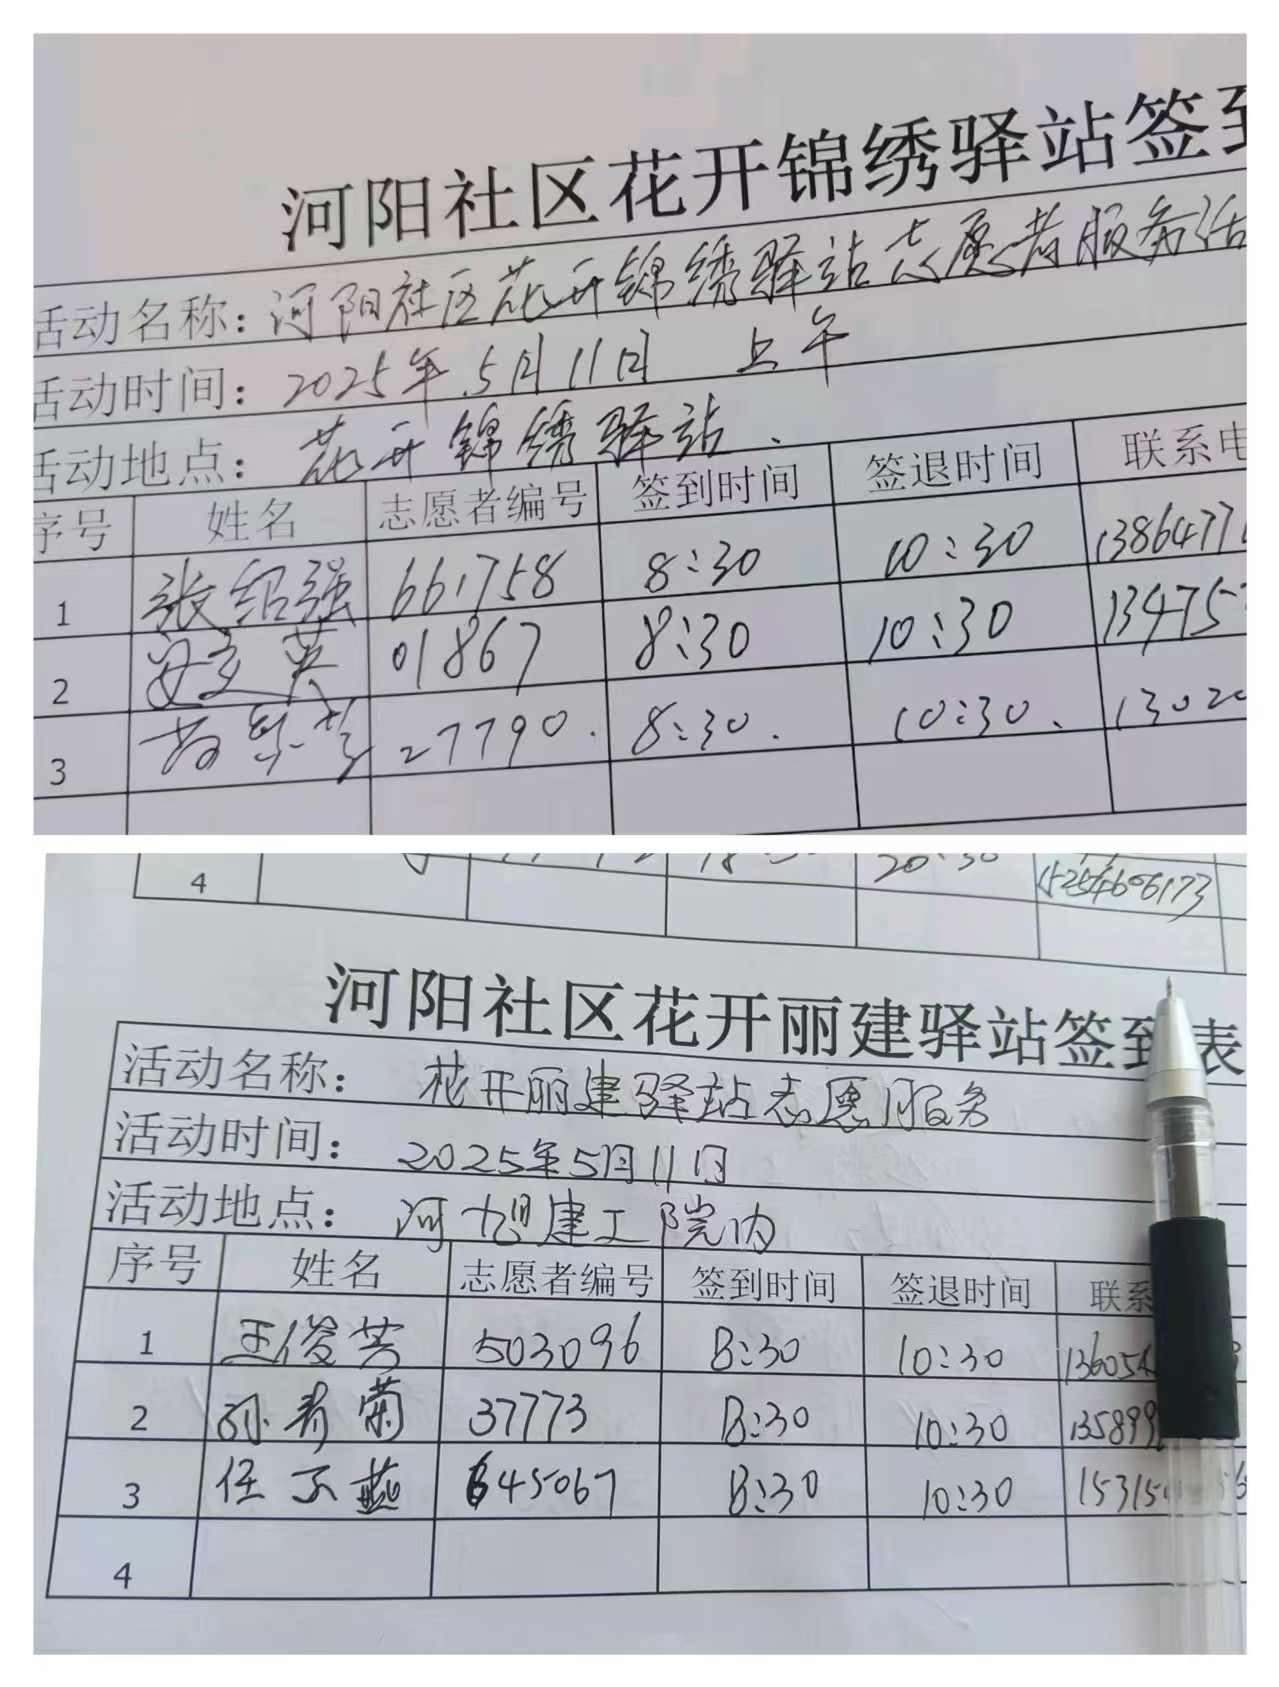 河阳社区花开锦绣驿站签到
活动名称：河阳社区花开锦绣驿站志愿者服务活
活动时间：2025年.5月11日 上午
活动地点：花开锦绣驿站.
序号 姓名 志愿者编号 签到时间 签退时间 联系电
1 张绍强 661758 8:30 10:30 1386477
2 安立英 01867 8:30 10:30 13475
3 27790. 8:30. 10:30. 13020
4 20:30 15254606173
河阳社区花开丽建驿站签到表
活动名称： 花开丽建驿站志愿服务
活动时间： 2025年5月11日
活动地点： 河旭建工院内
序号 姓名 志愿者编号 签到时间 签退时间 联系
1 王俊芳 503096 8:30 10:30 13605
2 孙秀菊 37773 8:30 10:30 135899
3 任子燕 645067 8:30 10:30 15315
4